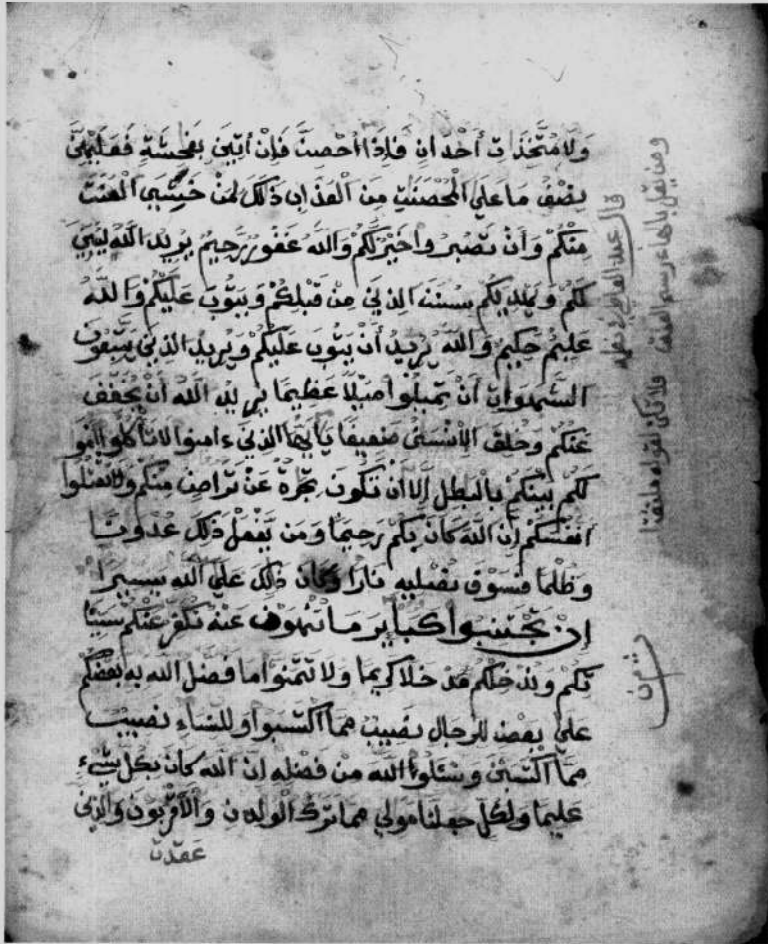 وَلَا مُتَّخِذَاتِ أَخْدَانٍ فَإِذَا أُحْصِنَّ فَإِنْ أَتَيْنَ بِفَحِشَةٍ فَعَلَيْهِنَّ
نِصْفُ مَا عَلَى الْمُحْصَنَتِ مِنَ الْعَذَابِ ذَلِكَ لِمَنْ خَشِيَ الْعَنَتَ
مِنْكُمْ وَأَنْ تَصْبِرُوا خَيْرٌ لَّكُمْ وَاللَّهُ غَفُورٌ رَّحِيمٌ يُرِيدُ اللَّهُ لِيُبَيِّنَ
لَكُمْ وَيَهْدِيَكُمْ سُنَنَ الذِينَ مِنْ قَبْلِكُمْ وَيَتُوبَ عَلَيْكُمْ وَاللَّهُ
عَلِيمٌ حَكِيمٌ وَاللَّهُ يُرِيدُ أَنْ يَتُوبَ عَلَيْكُمْ وَيُرِيدُ الذِينَ يَتَّبِعُونَ
الشَّهَوَاتِ أَنْ تَمِيلُوا مَيْلًا عَظِيمًا يُرِيدُ اللَّهُ أَنْ يُخَفِّفَ
عَنْكُمْ وَخُلِقَ الْإِنْسَنُ ضَعِيفًا يَأَيُّهَا الذِينَ ءَامَنُوا لَا تَأْكُلُوا أَمْوَ
لَكُمْ بَيْنَكُمْ بِالْبَطِلِ إِلَّا أَنْ تَكُونَ تِجَرَةٌ عَنْ تَرَاضٍ مِنْكُمْ وَلَا تَقْتُلُوا
أَنْفُسَكُمْ إِنَّ اللَّهَ كَانَ بِكُمْ رَحِيمًا وَمَنْ يَّفْعَلْ ذَلِكَ عُدْوَنًا
وَظُلْمًا فَسَوْفَ نُصْلِيهِ نَارًا وَكَانَ ذَلِكَ عَلَى اللَّهِ يَسِيرًا
إِنْ تَجْتَنِبُوا كَبَايِرَ مَا تُنْهَوْنَ عَنْهُ نُكَفِّرْ عَنْكُمْ سَيِّئَا
تِكُمْ وَنُدْخِلْكُمْ مَدْخَلًا كَرِيمًا وَلَا تَتَمَنَّوْا مَا فَضَّلَ اللَّهُ بِهِ بَعْضَكُمْ
عَلَى بَعْضٍ لِلرِّجَالِ نَصِيبٌ مِمَّا اكْتَسَبُوا وَلِلنِّسَاءِ نَصِيبٌ
مِمَّا اكْتَسَبْنَ وَسْئَلُوا اللَّهَ مِنْ فَضْلِهِ إِنَّ اللَّهَ كَانَ بِكُلِّ شَيْءٍ
عَلِيمًا وَلِكُلٍّ جَعَلْنَا مَوَلِيَ مِمَّا تَرَكَ الْوَلِدَنِ وَالْأَقْرَبُونَ وَالذِينَ
عَقَدَتْ
ثمن